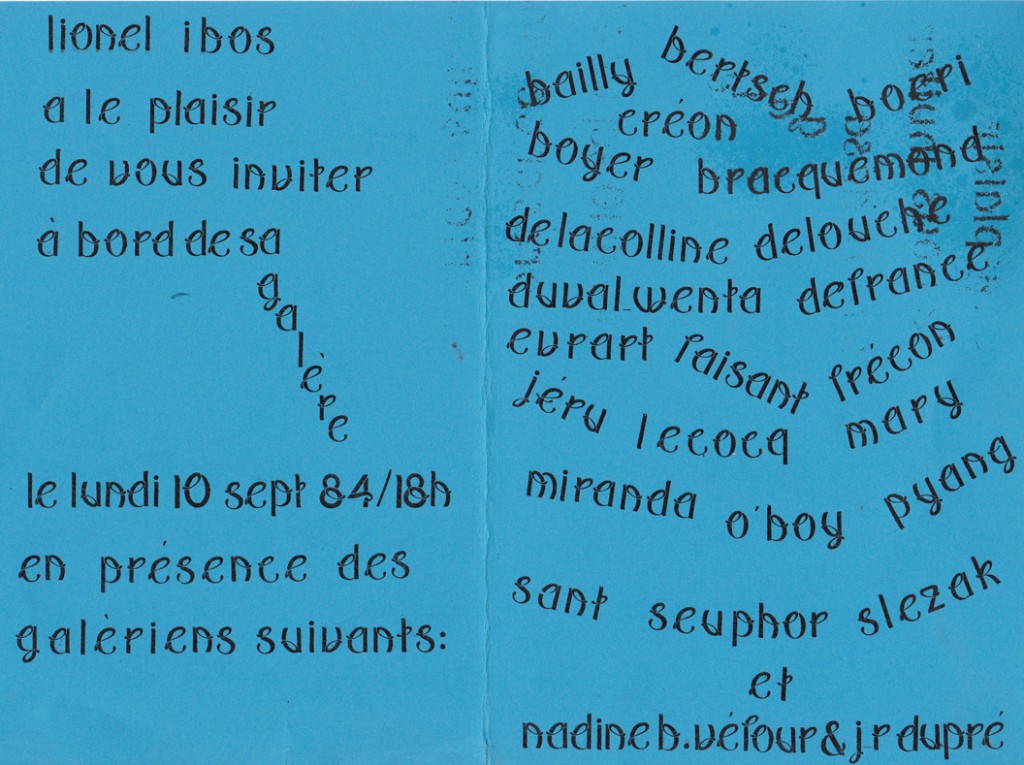 lionel ibos
a le plaisir
de vous inviter
à bord de sa
galère
le lundi 10 sept 84/18h
en présence des
galèriens suivants:
bailly bertsch boeri
créon
boyer bracquemond
delacolline delouche
duval_wenta defrance
evrart faisant frécon
jéru lecocq mary
miranda o'boy pyang
sant seuphor slezak
et
nadine b.véfour & j r dupré